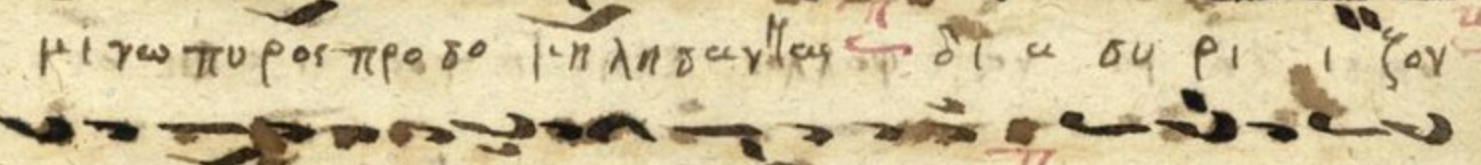 μι νω πυρος προ σο μη λη σαν τας δι α συ ρι ι ζον